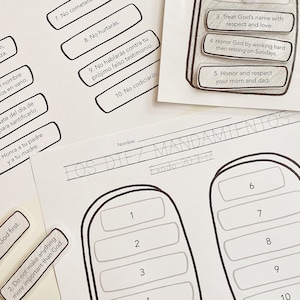 7. No cometerás
8. No hurtarás.
9. No hablarás contra tu
prójimo falso testimonio.
10. No codiciarás
nombre
en vano.
del día de
para santificarlo.
Honra a tu padre
y a tu madre.
3. Treat God's name with
respect and love.
4. Honor God by working hard
then resting on Sundays.
5. Honor and respect
your mom and dad.
Nombre
LOS DIEZ MANDAMIENTOS
1
2
3
4
6
7
8
9
10
God first.
2. Do not make anything
more important than God.